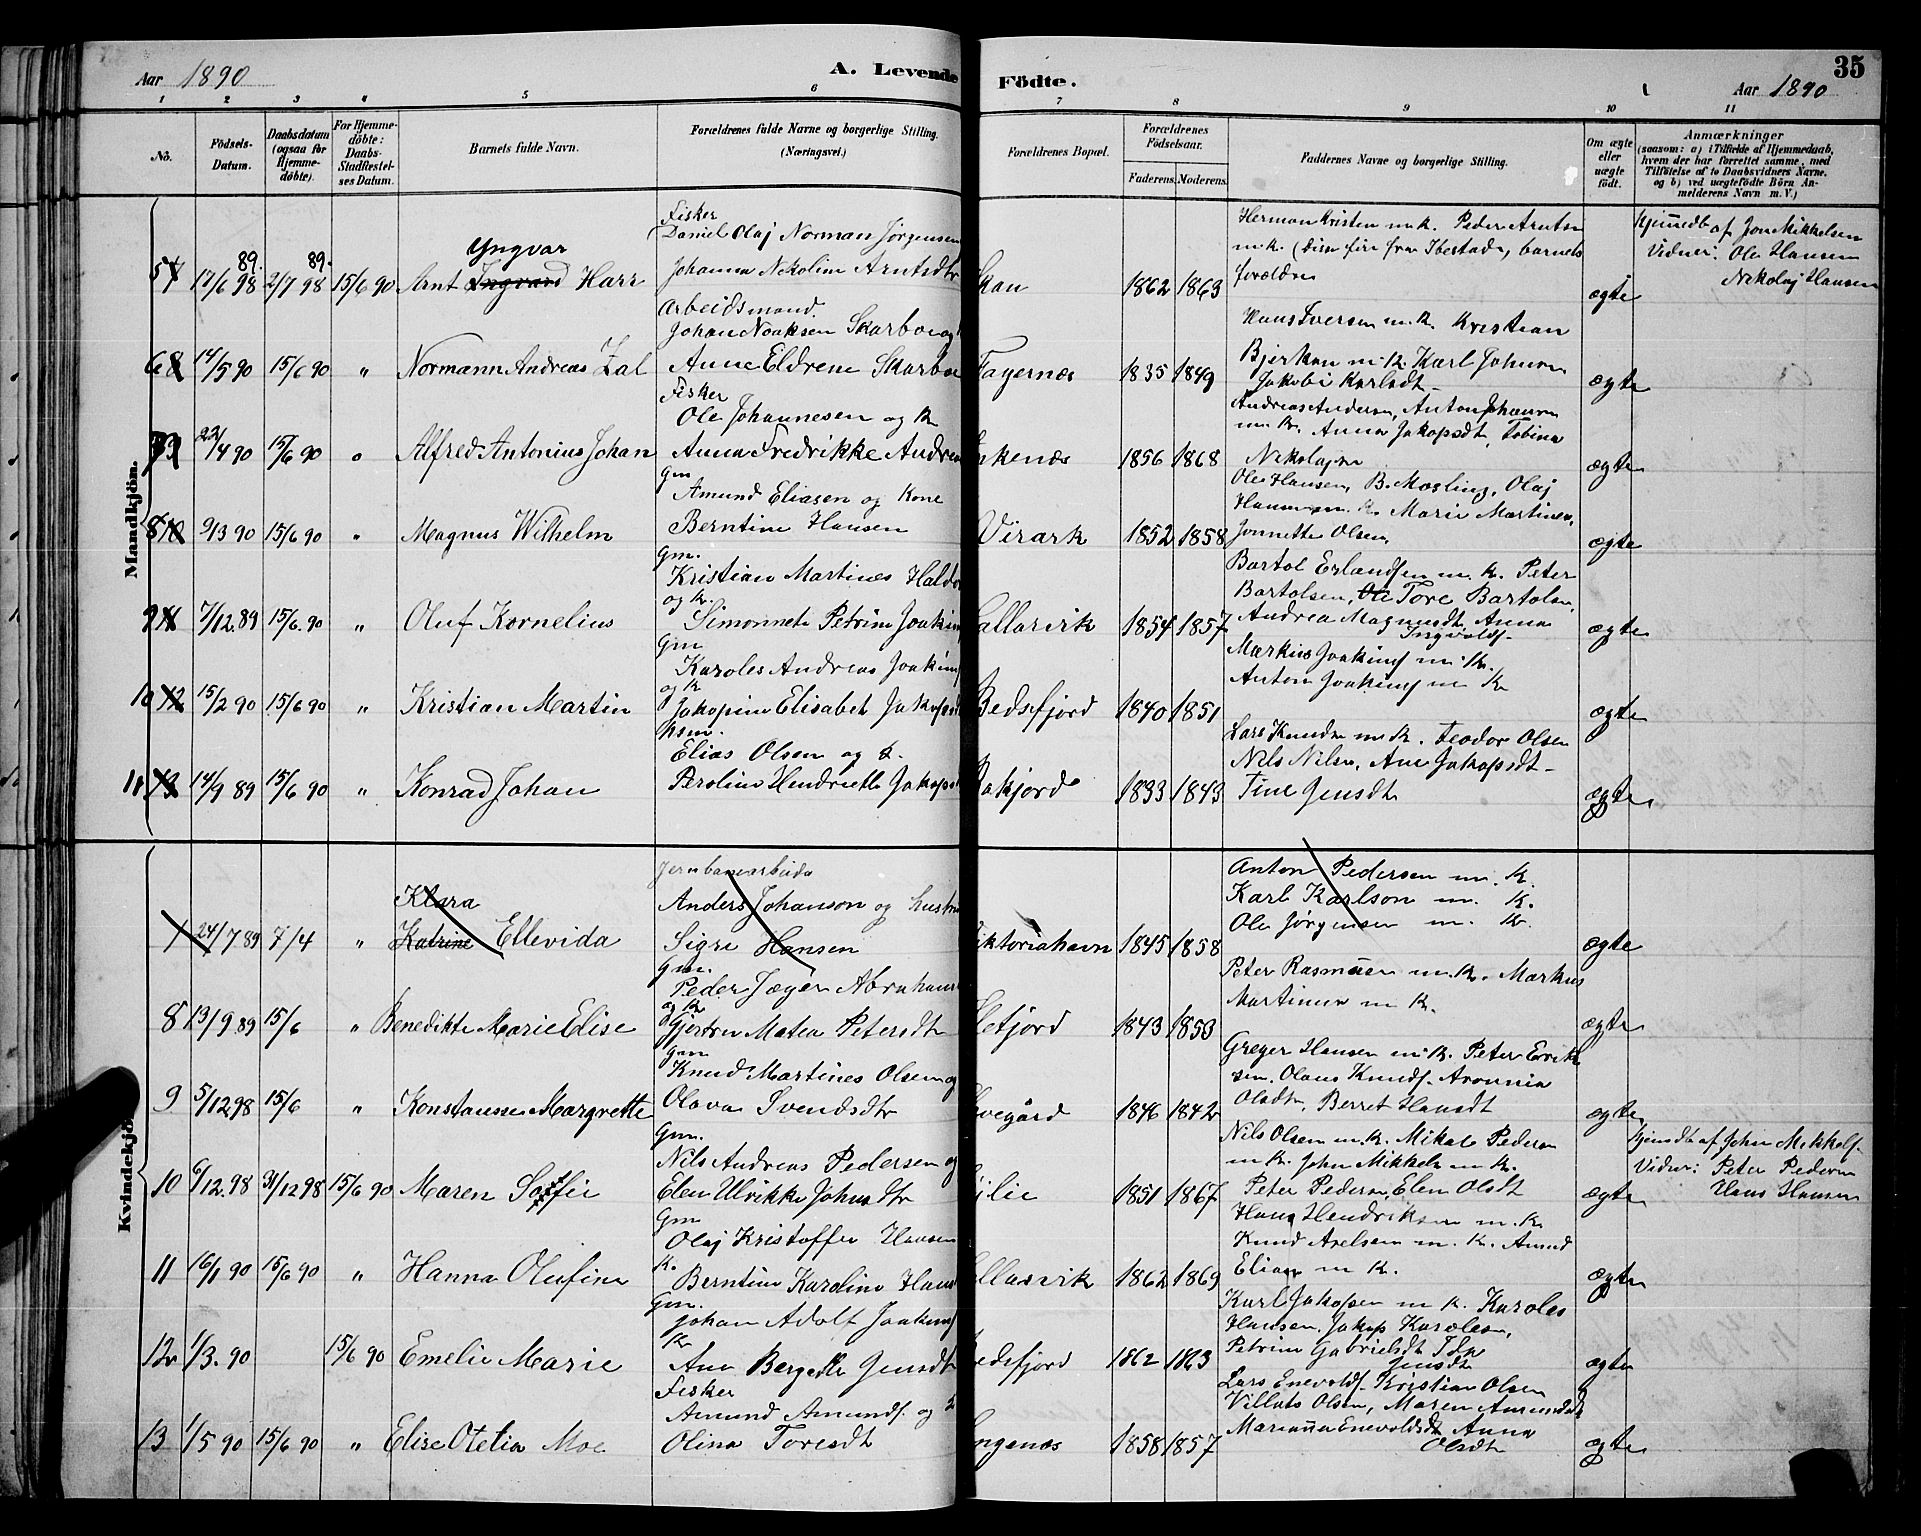 Aar 1890
A. Levende Födte.
Aar 1890
35
1 2 3 4 5 6 7 8 9 10 11
No.
Födsels-Datum.
Daabsdatum (ogsaa for Hjemme-döbte).
For Hjemme-döbte: Daabs-Stadfæstel-ses Datum.
Barnets fulde Navn.
Forældrenes fulde Navne og borgerlige Stilling. (Næringsvei.)
Forældrenes Bopæl.
Forældrenes Födselsaar.
Faderens. Moderens.
Faddernes Navne og borgerlige Stilling.
Om ægte eller uægte födt.
Anmærkninger
(saasom: a) i Tilfælde af Hjemmedaab,
hvem der har forrettet samme, med
Tilföielse af to Daabsvidners Navne.
og b) ved uægtefödte Börn An-
melderens Navn m. V.)
Mandkjön.
Fisker
Daniel Olaj Norman Jørgensen
Herman Kristen m. K. Peder Arntsen
Hjemmedb af Jon Mikkelsen
Yngvar
89. 89.
m. K. (disse fire fra Ibestad, barnets
Vidner: Ole Hansen
5 17/6 98 2/7 98 15/6 90 Arnt Ingvard Harr
Johanna Nekoline Arntsdtr
1862 1863
forældre
ægte
Nikolaj Hansen
Arbeidsmand.
Johan Noaksen Skarboe og
Hans Iversen m. K. Kristian
6 14/5 90 15/6 90 " Normann Andreas Zal
Anne Eldrene Skarboe
Fagernæs 1835 1849
Bjerkan m. K. Karl Johnsen
Jakobi Karlsdt
ægte
Fisker
Ole Johannesen og K
Andreas Andersen, Anton Johansen
m. K. Anna Jakopsdt, Tobina
22/4 90 15/6 90 " Alfred Antonius Johan
Anna Fredrikke Andrea
Ankenæs 1856 1868
Nikolajsen
ægte
Gm
Amund Eliasen og Kone
Ole Hansen, B. Mosling, Olaj
Hansen m. K. Marie Martinsen,
8 9/3 90 15/6 90 " Magnus Wilhelm
Berntine Hansen
Virark 1852 1858
Jonnette Olsen
ægte
Gm.
Kristian Martines Haldo
og K.
Bartol Erlandsen m. K. Peter
Bartolsen, Ole Tore Bartolsen,
9 7/12.89 15/6.90 " Oluf Kornelius
Simonnete Petrine Joakim
1854 1857
Andrea Magnusdt Anna
Ingvaldsdt
ægte
Gm
Karoles Andreas Joakims
og K
Markus Joakims m. K.
Anton Joakims m K
10 15/2 90 15/6 90 " Kristian Martin
Jakopine Elisabet Jakopsd
Bedsfjord 1840 1851
ægte
Hsm.
Elias Olsen og K.
Lars Knudsen m. K. Teodor Olsen
Nils Nilsen, Ane Jakopsdt
11 14/9 89 15/6 90 " Konrad Johan
Peroline Hendriette Jakops
1833 1843
Tine Jensdt
ægte
Kvindekjön.
Jernbanearbeider
Anders Johanson og hustru
Anton Pedersen m. K.
Karl Karlson m. K.
Klara
1 24/7 89 7/4 " Katrine Ellevida
Sigri Hansen
Viktoriahavn 1845 1858
Ole Jørgensen m. K.
ægte
Gm.
Peder Jæger Abrahams
og K
Peter Rasmusen m. K. Markus
8 13/9.89 15/6 " Benedikte Marie Elise
Gjertru Matea Petersdt
1843 1853
Martinsen m K.
ægte
Gm
Knud Martines Olsen og
Greger Hansen m. K. Peter Erik
sen. Olaus Knuds. Aronnia
9 5/12 98 15/6 " Konstansse Margrette
Olava Svendsdtr
1846 1842
Olsdt, Berret Hansdt
ægte
Gm.
Nils Andreas Pedersen og
Nils Olsen m. K. Mikal Pedersen
m K. John Mikkels m K.
Hjemdb af John Mikkels.
10 6/12.98 31/12 98 15/6 90 Maren Soffie
Elen Ulrikke Johnsdtr
1851 1867
Peter Pedersen, Elen Olsdt
ægte
Vidner: Peter Pedersen
Hans Hansen
Gm
Olaj Kristoffer Hansen
K.
Hans Hendriksen m. K.
Knud Axelsen m. K. Amund
11 16/1 90 15/6 90 " Hanna Olufine
Berntine Karoline Hans
1862 1869
Eliasen m K.
ægte
Gm.
Johan Adolf Joakims
K
Karl Jakopsen m K. Karoles
Hansen, Jakop Karolesen,
12 1/3. 90 15/6 90 Emelie Marie
Ane Bergedte Jensdt
1862 1863
Petrine Gabrielsdt
Jensdt
ægte
Fisker
Amund Amunds. og
Lars Enevolds. Kristian Olsen
Villats Olsen, Maren Amundsdt
13 1/5 90 15/6 90 " Elise Otelia Moe
Olina Toresdt
1858 1857
Marianna Enevoldsdt Anna
Olsdt
ægte